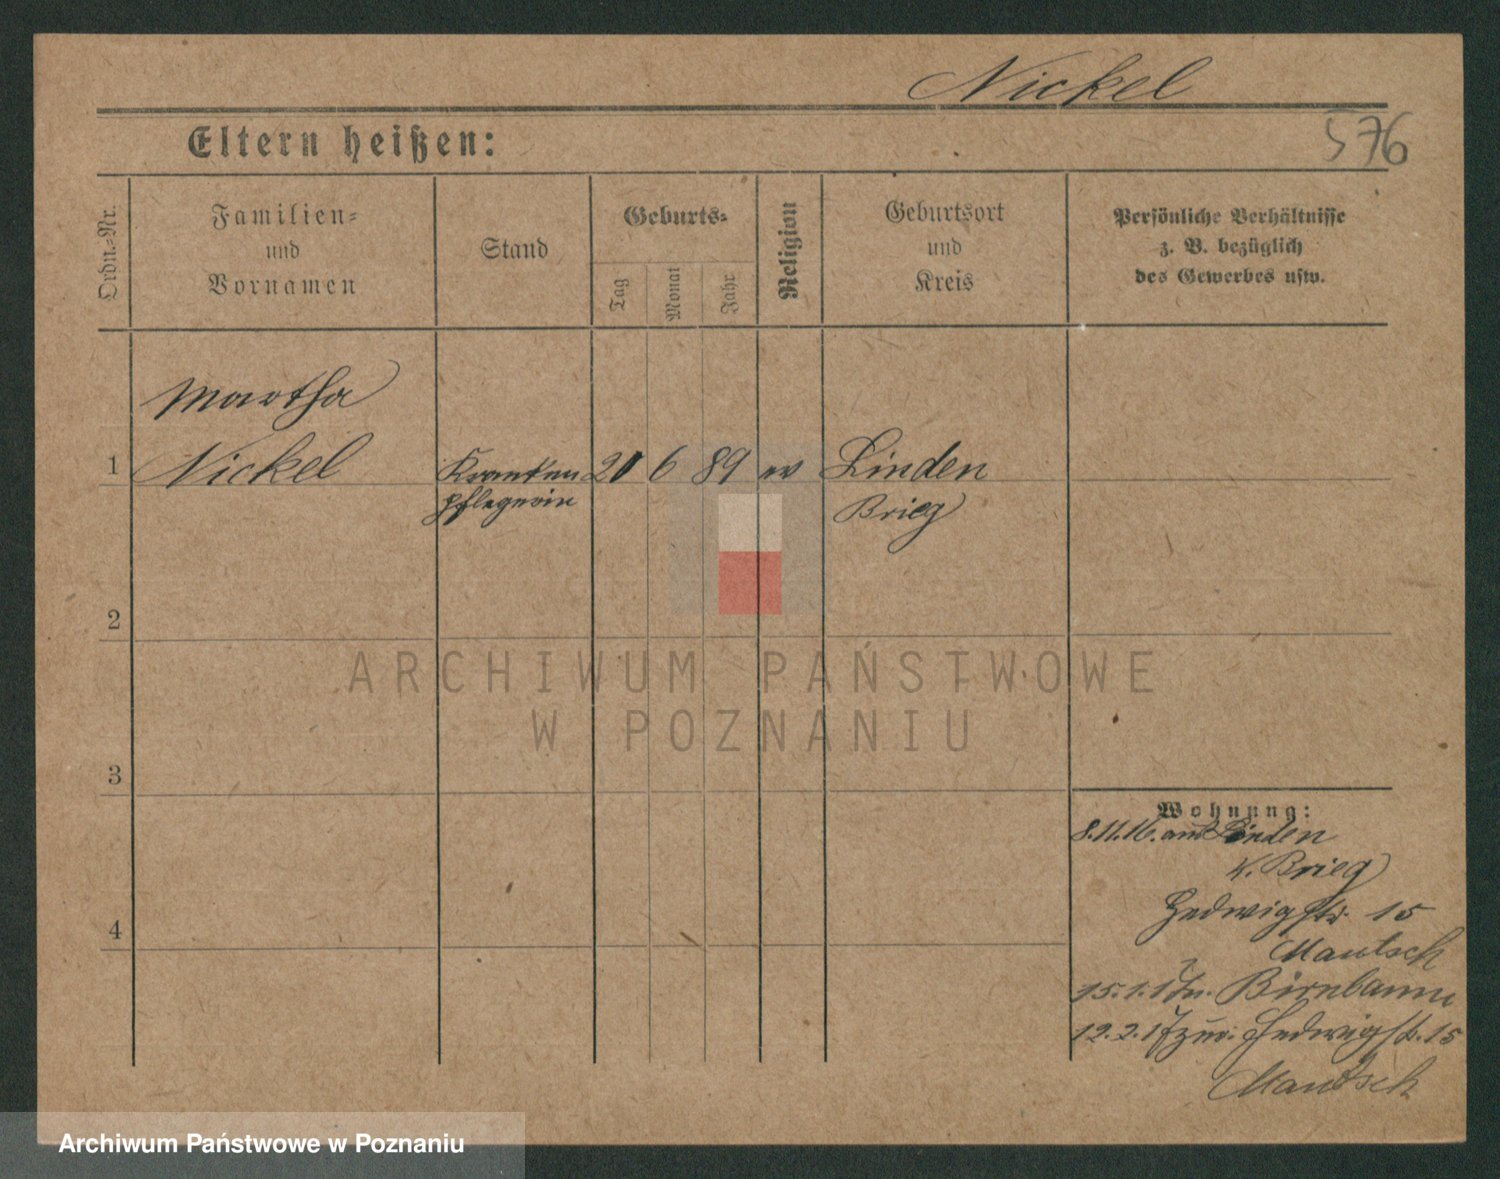 Nickel
576
Eltern heißen:
Ordn.-Nr.
Familien-
und
Vornamen
Stand
Geburts-
Tag
Monat
Jahr
Religion
Geburtsort
und
Kreis
Persönliche Verhältnisse
z. B. bezüglich
des Gewerbes usw.
Martha
1 Nickel Kranken 6 89 ev Linden
pflegerin Brieg
2
ARCHIWUM PAŃSTWOWE
W POZNANIU
3
Wohnung:
8.11.16. aus Linden
K. Brieg
Hedwigstr. 15
4
Mautsch
15.1.17 n. Birnbaum
12.2.17 zur. Hedwigstr. 15
Mautsch
Archiwum Państwowe w Poznaniu